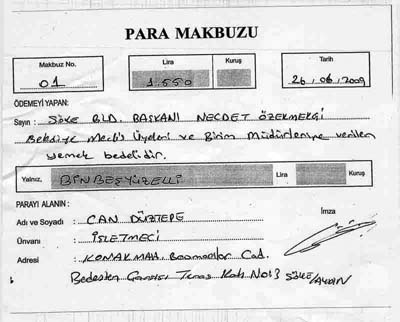 PARA MAKBUZU
Makbuz No. Lira Kuruş Tarih
01 1.550 26.06.2009
ÖDEMEYİ YAPAN:
Sayın : SÖKE BLD. BAŞKANI NECDET ÖZEKMEKÇİ
Belediye Meclis Üyeleri ve Birim Müdürlerine verilen
yemek bedelidir.
Yalnız, BİNBEŞYÜZELLİ Lira Kuruş
PARAYI ALANIN :
Adı ve Soyadı : CAN DÜZTEPE İmza
Ünvanı : İŞLETMECİ
Adresi : KONAK MAH. Cad.
Bedesten Çarşısı Teras Katı No:3 SÖKE/AYDIN